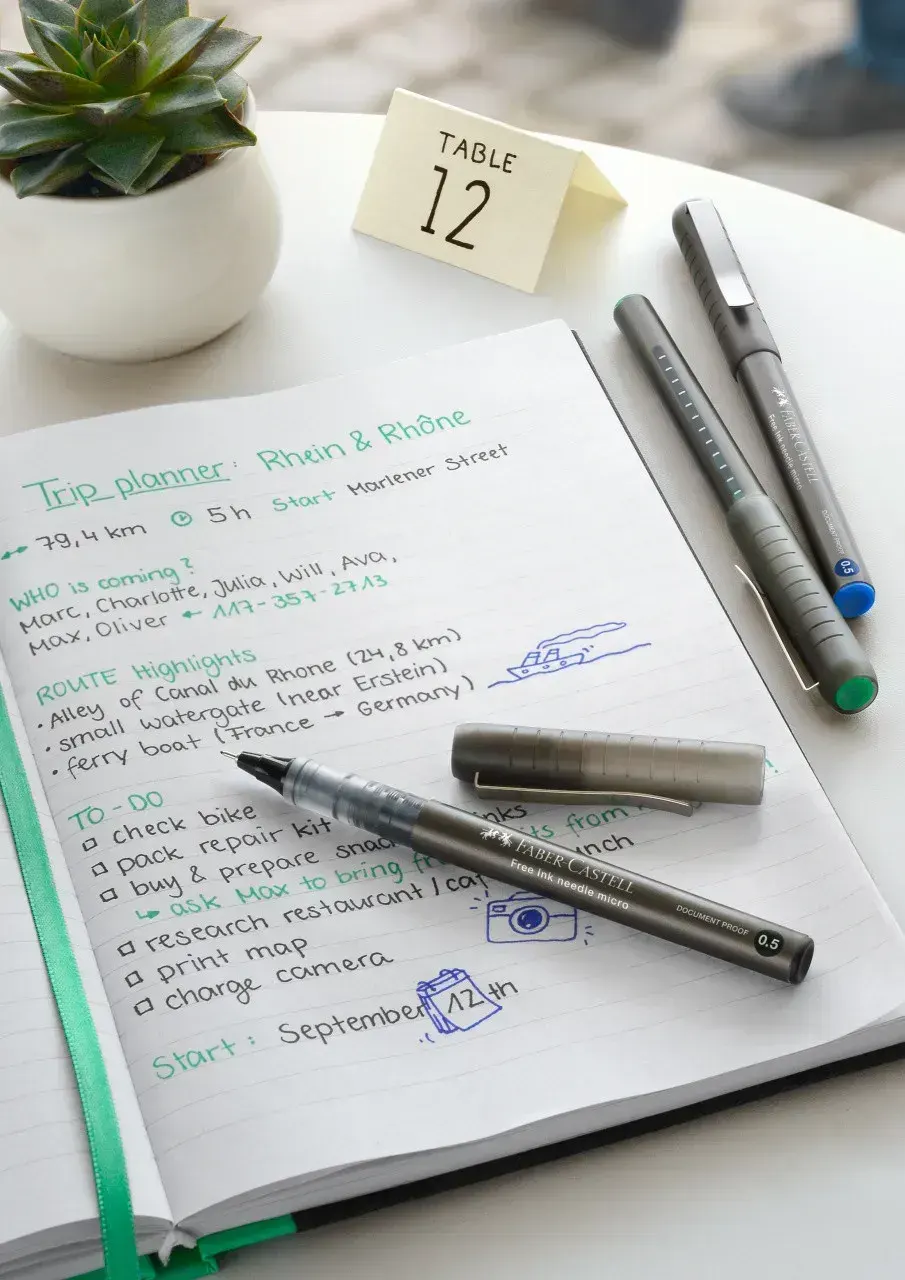 TABLE
12
Trip planner: Rhein & Rhône
79,4 km 5 h Start Marlener Street
WHO is coming?
Marc, Charlotte, Julia, Will, Ava,
Max, Oliver ← 117-357-2713
ROUTE Highlights
• Alley of Canal du Rhone (24,8 km)
• small watergate (near Erstein)
• ferry boat (France → Germany)
TO-DO
check bike
pack repair kit
buy & prepare
ask Max to bring from
research restaurant /
print map
charge camera
Start: September 12th
FABER-CASTELL
Free ink needle micro
DOCUMENT PROOF
0.5
FABER-CASTELL
Free ink needle micro
DOCUMENT PROOF
0.5